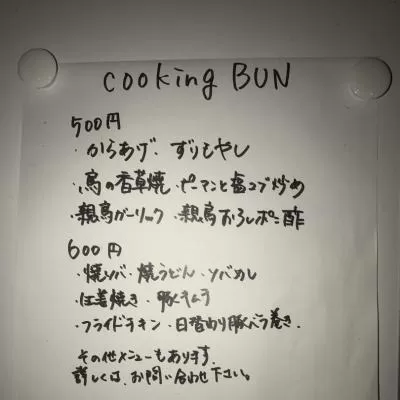 cooking BUN
500円
・からあげ・ずりもやし
・鳥の香草焼・ピーマンと塩コブ炒め
・親鳥ガーリック・親鳥おろしポン酢
600円
・焼ソバ・焼うどん・ソバめし
・生姜焼き・豚キムチ
・フライドチキン・日替わり豚バラ巻き.
その他メニューもあります.
詳しくは、お問い合わせ下さい。